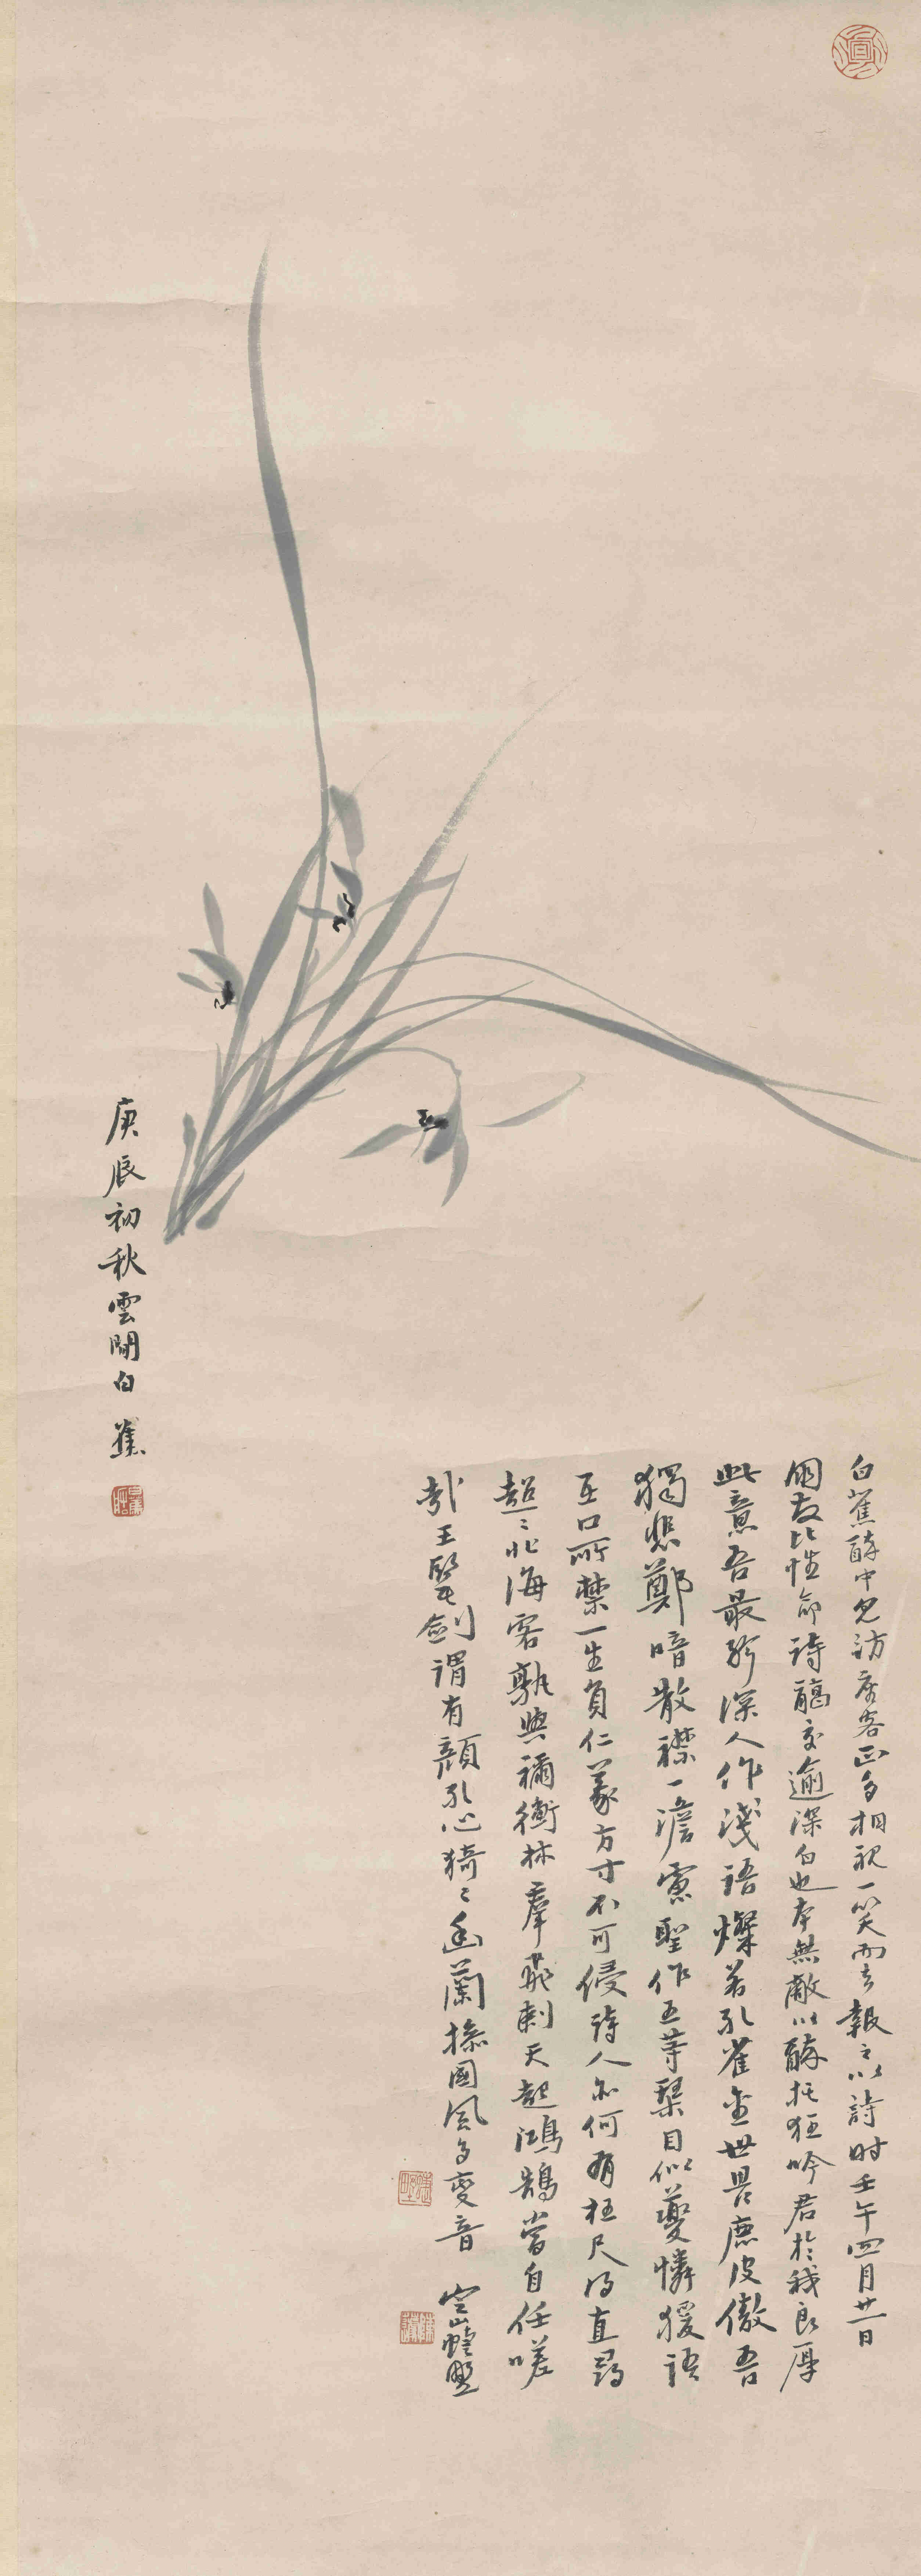 白蕉醉中見訪座客正多相視一笑而去報之以詩時壬午四月廿一日
朋友比性命詩關交逾深白也本無敵以醉托狂吟君於我良厚
此意吾最矜深人作淺語燦若孔雀金世畏鹿皮傲吾
獨悲鄭喑散襟一澹慮聖作五等琴目似夔憐猨語
互口所禁一生負仁義方寸不可侵詩人亦何有枉尺得直尋
超〻北海客孰與禰衡林羣飛刺天起鴻鵠當自任嗟
哉王郎劍謂有顏孔心猗〻幽蘭操國風多變音 空山
庚辰初秋雲間白蕉